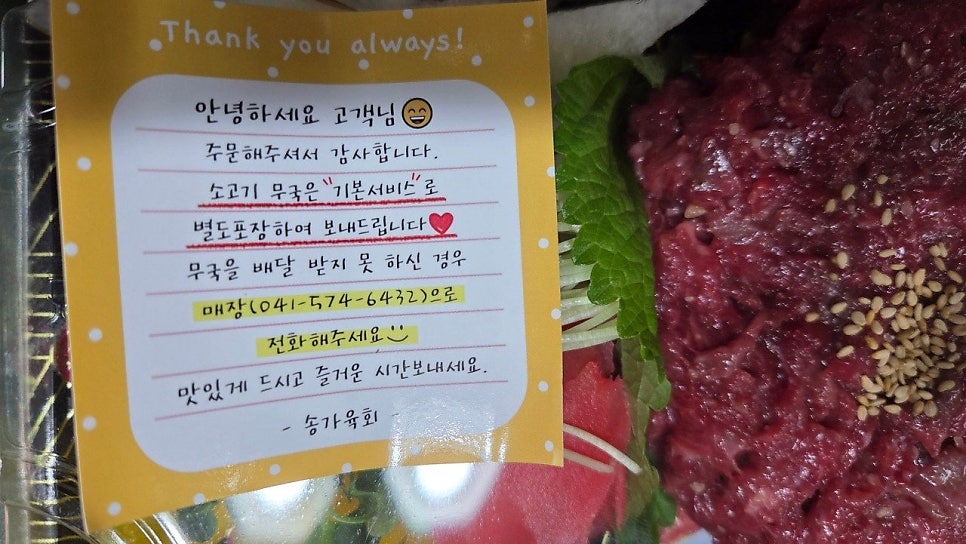 Thank you always!
안녕하세요 고객님😄
주문해주셔서 감사합니다.
소고기 무국은 "기본서비스"로
별도포장하여 보내드립니다♥
무국을 배달 받지 못 하신 경우
매장(041-574-6432)으로
전화해주세요^^
맛있게 드시고 즐거운 시간보내세요.
- 송가육회 -